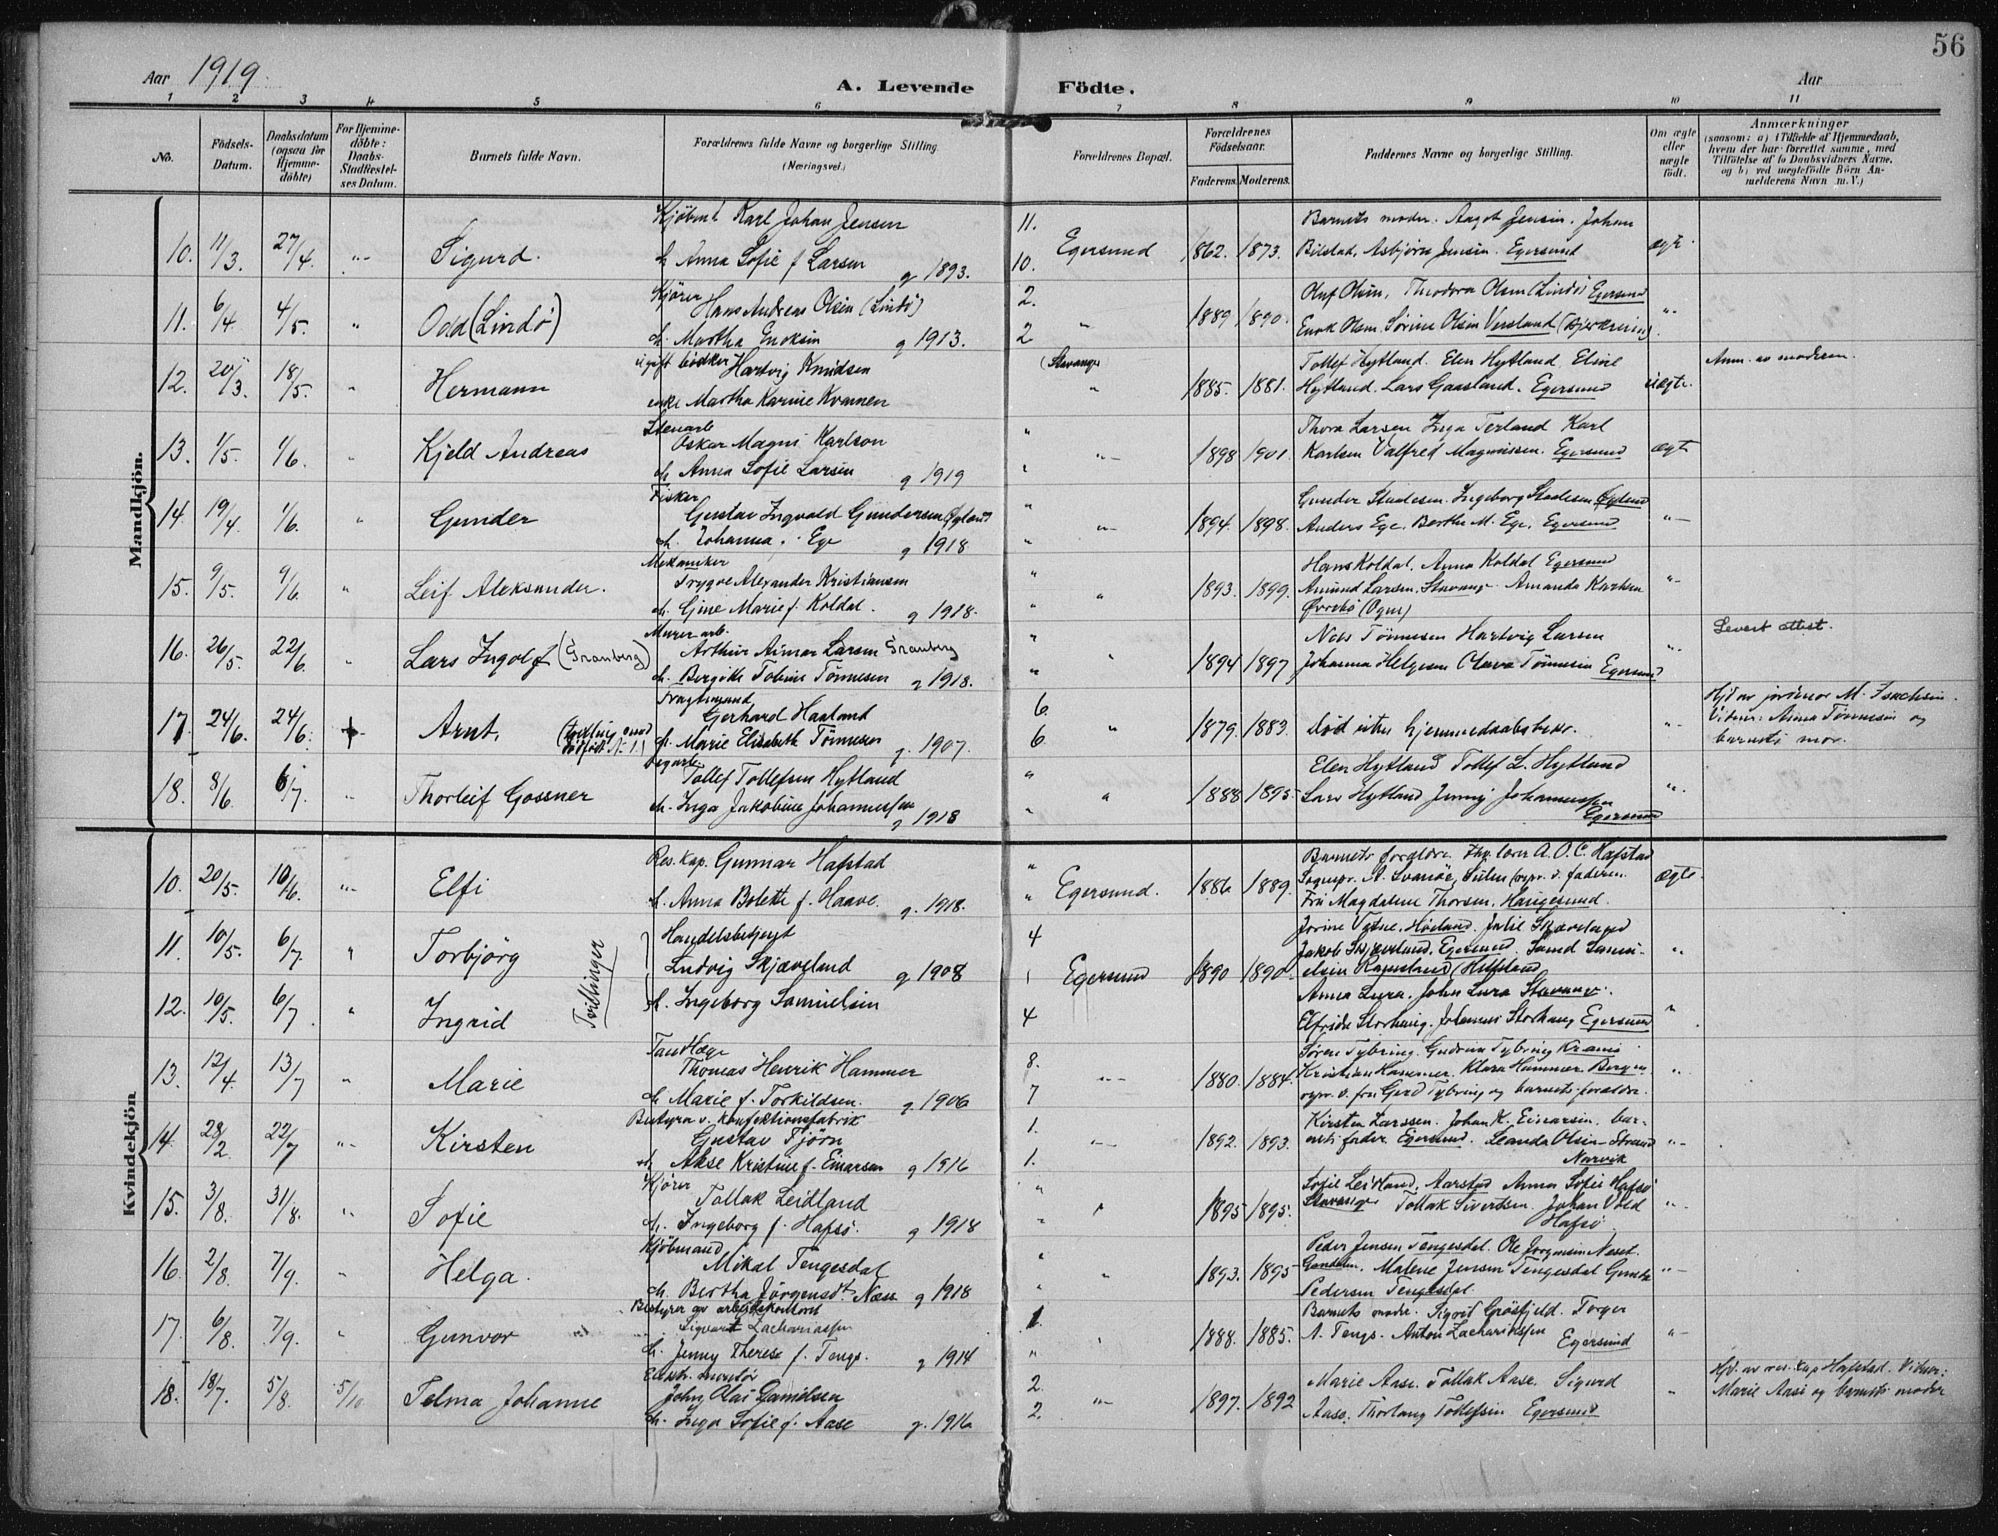 56
Aar 1919.
A. Levende Födte.
Aar
1 2 3 4 5 6 7 8 9 10 11
No.
Födsels-Datum.
Daabsdatum (ogsaa for Hjemme-döbte)
For Hjemme-döbte: Daabs-Stadfæstel-ses Datum.
Barnets fulde Navn.
Forældrenes fulde Navne og borgerlige Stilling (Næringsvei.)
Forældrenes Bopæl.
Forældrenes Födselsaar.
Faderens. Moderens.
Faddernes Navne og borgerlige Stilling.
Om ægte eller uægte födt.
Anmærkninger
(saasom: a) i Tilfælde af Hjemmedaab, hvem der har forrettet samme, med Tilföielse af to Daabsvidners Navne, og b) ved uægtefödte Börn An-melderens Navn m. V.)
Mandkjön.
Kjöbm. Karl Johan Jensen 11. Barnets moder. Aagot Jensen. Johan
10. 11/3. 27/4. "- Sigurd. Egersund 1862. 1873. Bilstad, Asbjørn Jensen. Egersund ægte.
h. Anna Sofie f Larsen g 1893. 10.
Kjörer Hans Andreas Olsen (Lindö) 2. Oluf Olsen, Theodora Olsen (Lindö) Egersund
11. 6/4 4/5. " Odd (Lindö) " 1889 1890. Enok Olsen. Sörine Olsen Versland (Bjerkreim). "
h. Martha Enoksen g 1913. 2
ugift bödker Hartvig Knudsen (Stavanger Tollef Hytland. Elen Hytland Eline Anm. av moderen.
12. 20/3. 18/5. " Hermann " 1885. 1881. Hytland. Lars Gaasland. Egersund uægte.
enke Martha Karine Kvamen
Stenarb. Oskar Magni Karlson " Thora Larsen Inga Terland Karl
13. 1/5. 1/6. " Kjeld Andreas "- 1898 1901. Karlsen Valfred Magnussen. Egersund ægte
h. Anna Sofie Larsen g 1919
Fisker Gustav Ingvald Gundersen Øgland " Gunder Staalesen. Ingeborg Staalesen Øgland
14. 19/4. 1/6. " Gunder "- 1894. 1898. Anders Ege. Berthe M. Ege. Egersund "-
h. Johanna. Ege g 1918. "
Mekaniker Trygve Alexander Kristiansen " Hans Koldal. Anna Koldal Egersund
15. 9/5. 9/6. " Leif Aleksander. " 1893. 1899. Amund Larsen, Stavanger Amanda Karlsen "-
h. Gine Marie f. Koldal. g 1918. " (Ogna)
Murer arb. Arthur Aimar Larsen Granberg " Nils Tönnesen Hartvig Larsen Levert attest.
16. 26/5. 22/6. " Lars Ingolf (Granberg) " 1894 1897 Johanna Helgesen Olava Tönnesen Egersund "
h. Bergitte Tobine Tönnesen g 1918. "
Fragtemand Gerhard Haaland 6. Hjd av jordmor M. Isachsen.
17. 24/6. 24/6. + Arnt. (tvilling med dödfödt N. 1.) " 1879. 1883. Död efter hjemmedaabsbekr. "- Vidner: Anna Tönnesen og
h. Marie Elisabeth Tönnesen g. 1907. 6. barnets mor.
Tollef Tollefsen Hytland " Elen Hytland Tollef L. Hytland
18. 8/6. 6/7. "- Thorleif Gossner " 1888 1895 Lars Hytland Jenny Johannessen "
h. Inga Jakobine Johannessen g 1918 " Egersund
Kvindekjön
Res. kap. Gunnar Hafstad " Barnets forældre. A. O. C. Hafstad
10. 20/5. 10/6. "- Elfi Egersund. 1886 1889. Sognepr. A. Svanöe, Sulen (repr. v. faderen. ægte.
h. Anna Bolette f. Haave. g. 1918. " Fru Magdalene Thorsen. Haugesund.
Handelsbetjent 4
11. 10/5. 6/7. " Torbjörg Tvillinger Ludvig Skjæveland g 1908 1 Egersund 1890 1890 Jakob Skjæveland. Egersund. "
12. 10/5. 6/7. " Ingrid h. Ingeborg Samuelsen 4 Anna Lura. John Lura Stavanger. "
Egersund
Tandlæge Thomas Henrik Hammer 8. Sören Tybring. Gudrun Tybring
13. 12/4 13/7 " Marie "- 1880. 1884. Kristian Hammer. Klara Hammer Bergen "
h. Marie f. Torkildsen. g 1906 7 repr. v. fru Gerd Tybring og barnets forældre.
Bestyrer v. konfektionsfabrik Gustav Tjörn 1. Kirsten Larssen. Johan K. Einarsen. bar-
14. 28/2. 22/7 "- Kirsten "- 1892. 1893. nets fader Egersund. Leanda Olsen-Strand "-
h. Akse Kristine f. Einarsen g 1916 1. Narvik
Kjörer Tollak Leidland " Sofie Leidland, Aarstad Anna Sofie Hafsö
15. 3/8. 31/8. " Sofie " 1895 1895. Stavanger Tollak Sivertsen. Johan Vold "
h. Ingeborg f. Hafsö. g 1918 " Hafsö
Kjöbmand Mikal Tengesdal " Peder Jensen Tengesdal. Ole Jörgensen Neset
16. 2/8. 7/9. " Helga. " 1893. 1895 Malene Jensen Tengesdal "-
h. Bertha Jörgensdt. Næse g 1918 " Pedersen Tengesdal
Bestyrer av arbeidskontoret Sigvart Zachariassen 1. Barnets moder. Sigrid Grösfjeld. Torger
17. 6/8. 7/9. " Gunvor " 1888. 1885. A. Tengs. Anton Zachariassen Egersund "-
h. Jenny Therese f. Tengs. g 1914 "
John Olai Gamelsen 2. Marie Aase. Tollak Aase. Sigurd Hjd. av res. kap Hafstad. Vidner:
18. 18/7. 5/8. 5/10 Telma Johanne "- 1897. 1892 Aase. Thorlaug Tollefsen Egersund " Marie Aase og barnets moder
h. Inga Sofie f. Aase g. 1916 2.